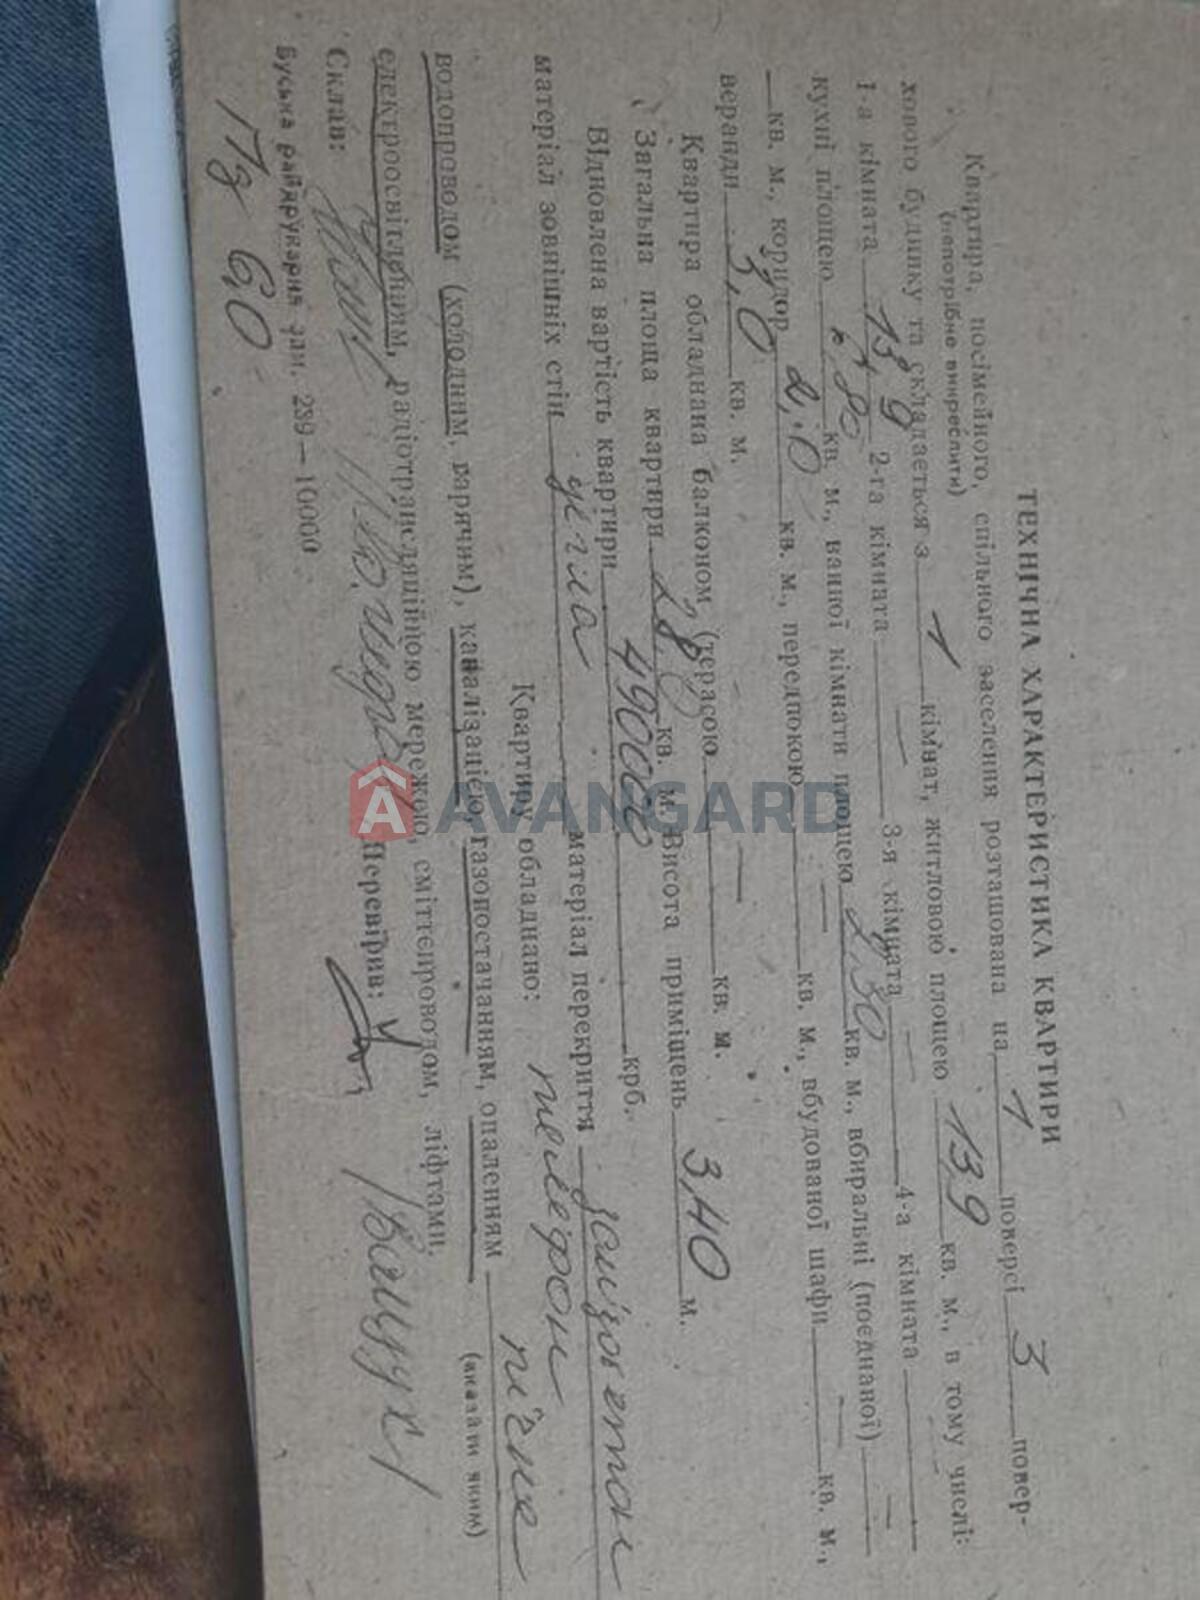 ТЕХНІЧНА ХАРАКТЕРИСТИКА КВАРТИРИ
Квартира, посімейного, спільного заселення розташована на 1 поверсі 3 повер-
(непотрібне викреслити)
хового будинку та складається з 1 кімнат, житловою площею 13,9 кв. м., в тому числі:
1-а кімната 13,9 2-га кімната — 3-я кімната — 4-а кімната —
кухні площею 6,80 кв. м., ванної кімнати площею 2,30 кв. м., вбиральні (поєднаної) —
кв. м., коридор 2,0 кв. м., передпокою — кв. м., вбудованої шафи — кв. м.,
веранди 3,0 кв. м.
Квартира обладнана балконом, (терасою — кв. м.
Загальна площа квартири 28,0 кв. м. Висота приміщень 3,40 м.
Відновлена вартість квартири 490000 крб.
матеріал зовнішніх стін цегла матеріал перекриття
Квартиру обладнано: телефон
водопроводом (холодним, гарячим), каналізацією, газопостачанням, опаленням пічне
(вказати яким)
електроосвітленням, радіотрансляційною мережею, сміттєпроводом, ліфтами.
Склав: Перевірив:
Буська райдрукарня зам. 289—10000
17,8 60
AVANGARD